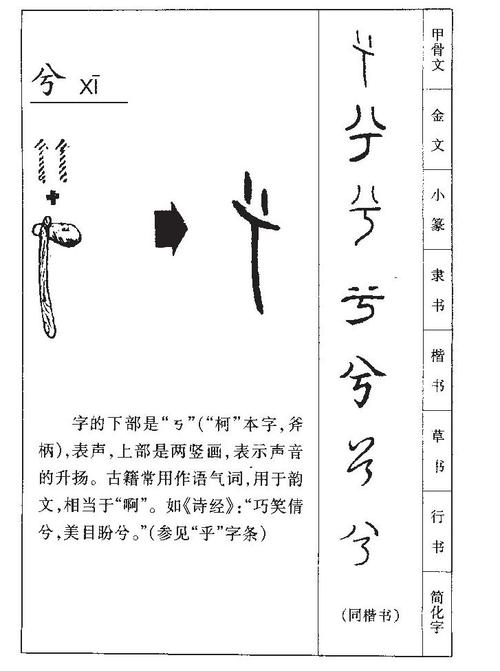 兮 xī
字的下部是“丂”(“柯”本字,斧
柄),表声,上部是两竖画,表示声音
的升扬。古籍常用作语气词,用于韵
文,相当于“啊”。如《诗经》:“巧笑倩
兮,美目盼兮。”(参见“乎”字条)
甲骨文
兮
金文
兮
小篆
兮
隶书
兮
楷书
兮
草书
兮
行书
兮
简化字
(同楷书)